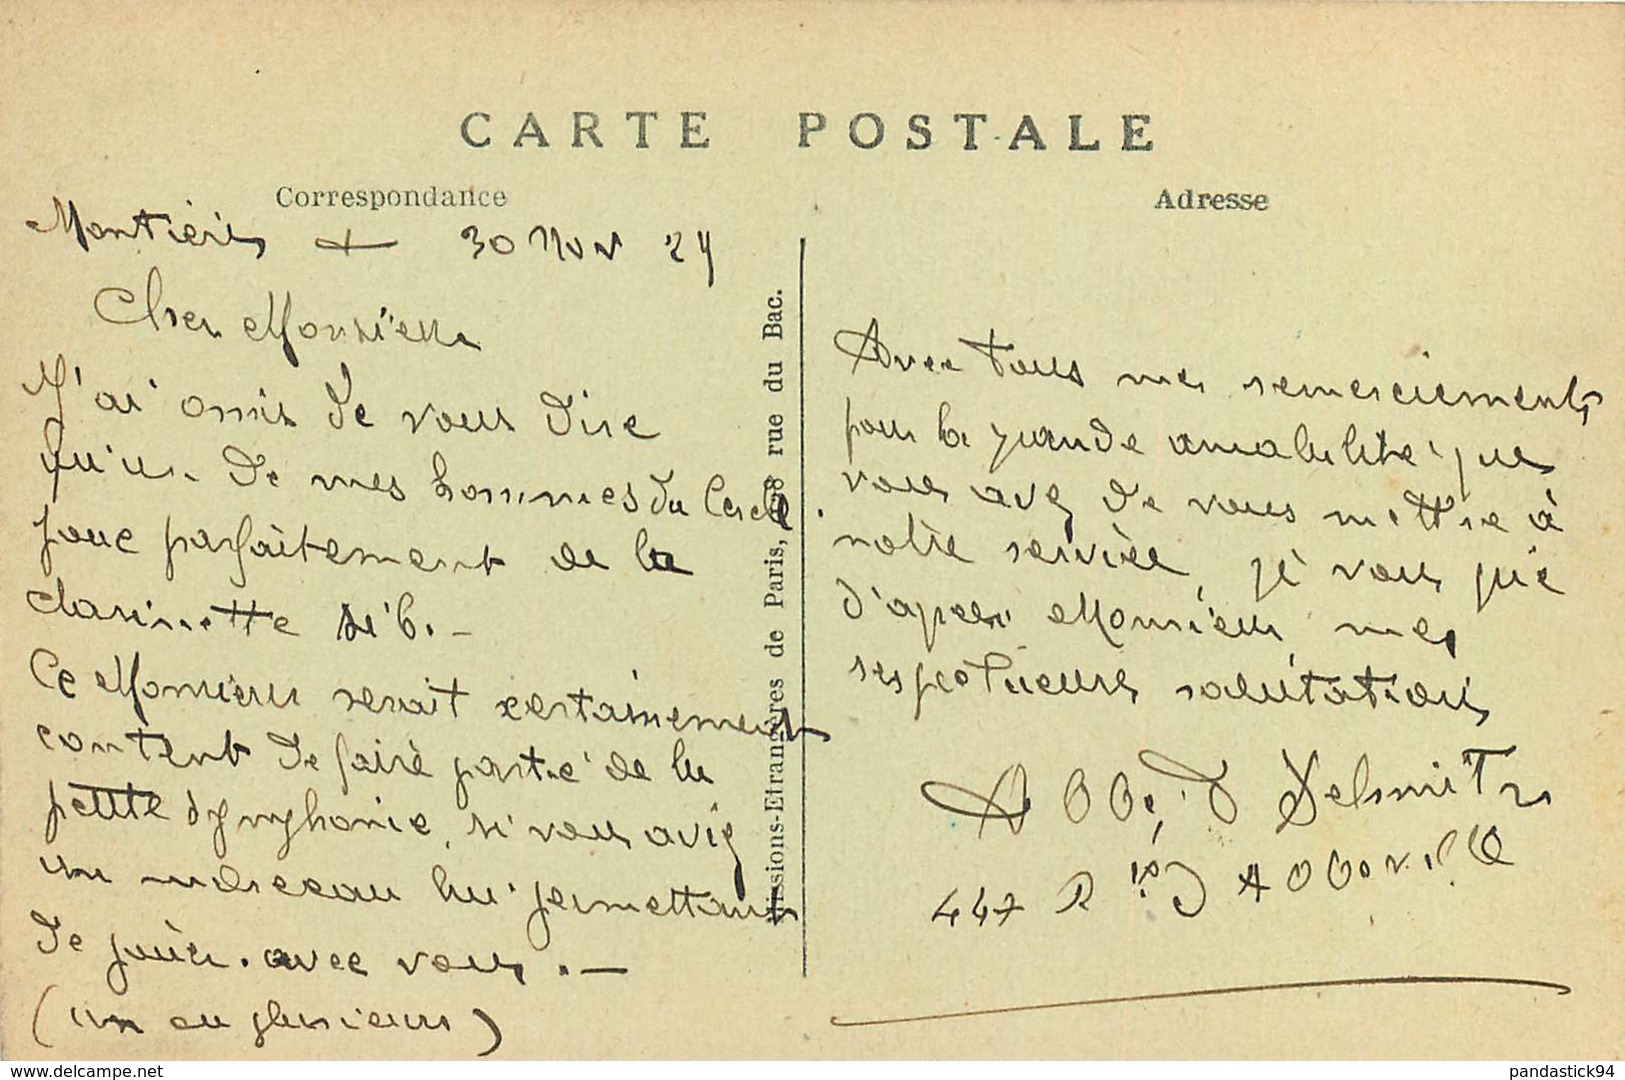 CARTE POSTALE
Correspondance
Adresse
Montières + 30 Nov 24
Cher Monsieur
J'ai omis de vous dire
qu'un de mes hommes du Cercle
joue parfaitement de la
clarinette si b. -
Ce Monsieur serait certainement
content de faire partie de la
petite symphonie, si vous aviez
un morceau lui permettant
de jouer avec vous. -
(un ou plusieurs)
Missions-Etrangères de Paris, 128 rue du Bac.
Avec tous mes remerciements
pour la grande amabilité que
vous avez de vous mettre à
notre service, je vous prie
d'agréer Monsieur, mes
respectueuses salutations
Abbé Schmit
447 R d'Abbeville
http://www.delcampe.net
pandastick94